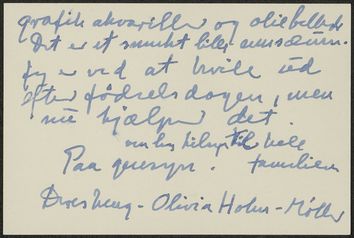 grafik akvareller og oliebilleder
Det er et smukt lille museum.
Jeg er ved at hvile ud
efter fødselsdagen, men
nu hjælper det.
hilsen til hele
Paa gensyn. familien
Deres heng. Olivia Holm-Møller